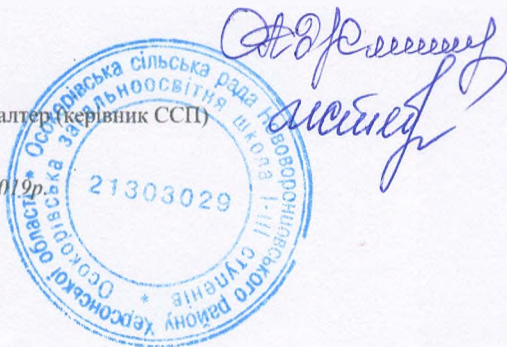 алтер (керівник ССП)
019р.
Осокорівська сільська рада Нововоронцовського району Херсонської області *
Осокорівська загальноосвітня школа І-ІІІ ступенів *
21303029